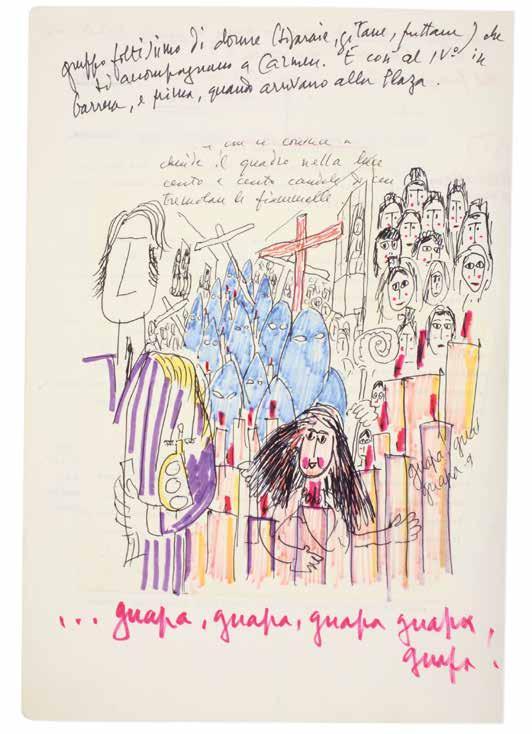 gruppo foltissimo di donne (sigaraie, gitane, puttane) che
si accompagnano a Carmen. E così al IV° in
barrera, e prima, quando arrivano alla Plaza.
chiude il quadro nella luce
cento e cento candele di cera
tremolan le fiammelle
guapa guapa
guapa
... guapa, guapa, guapa guapa,
guapa!